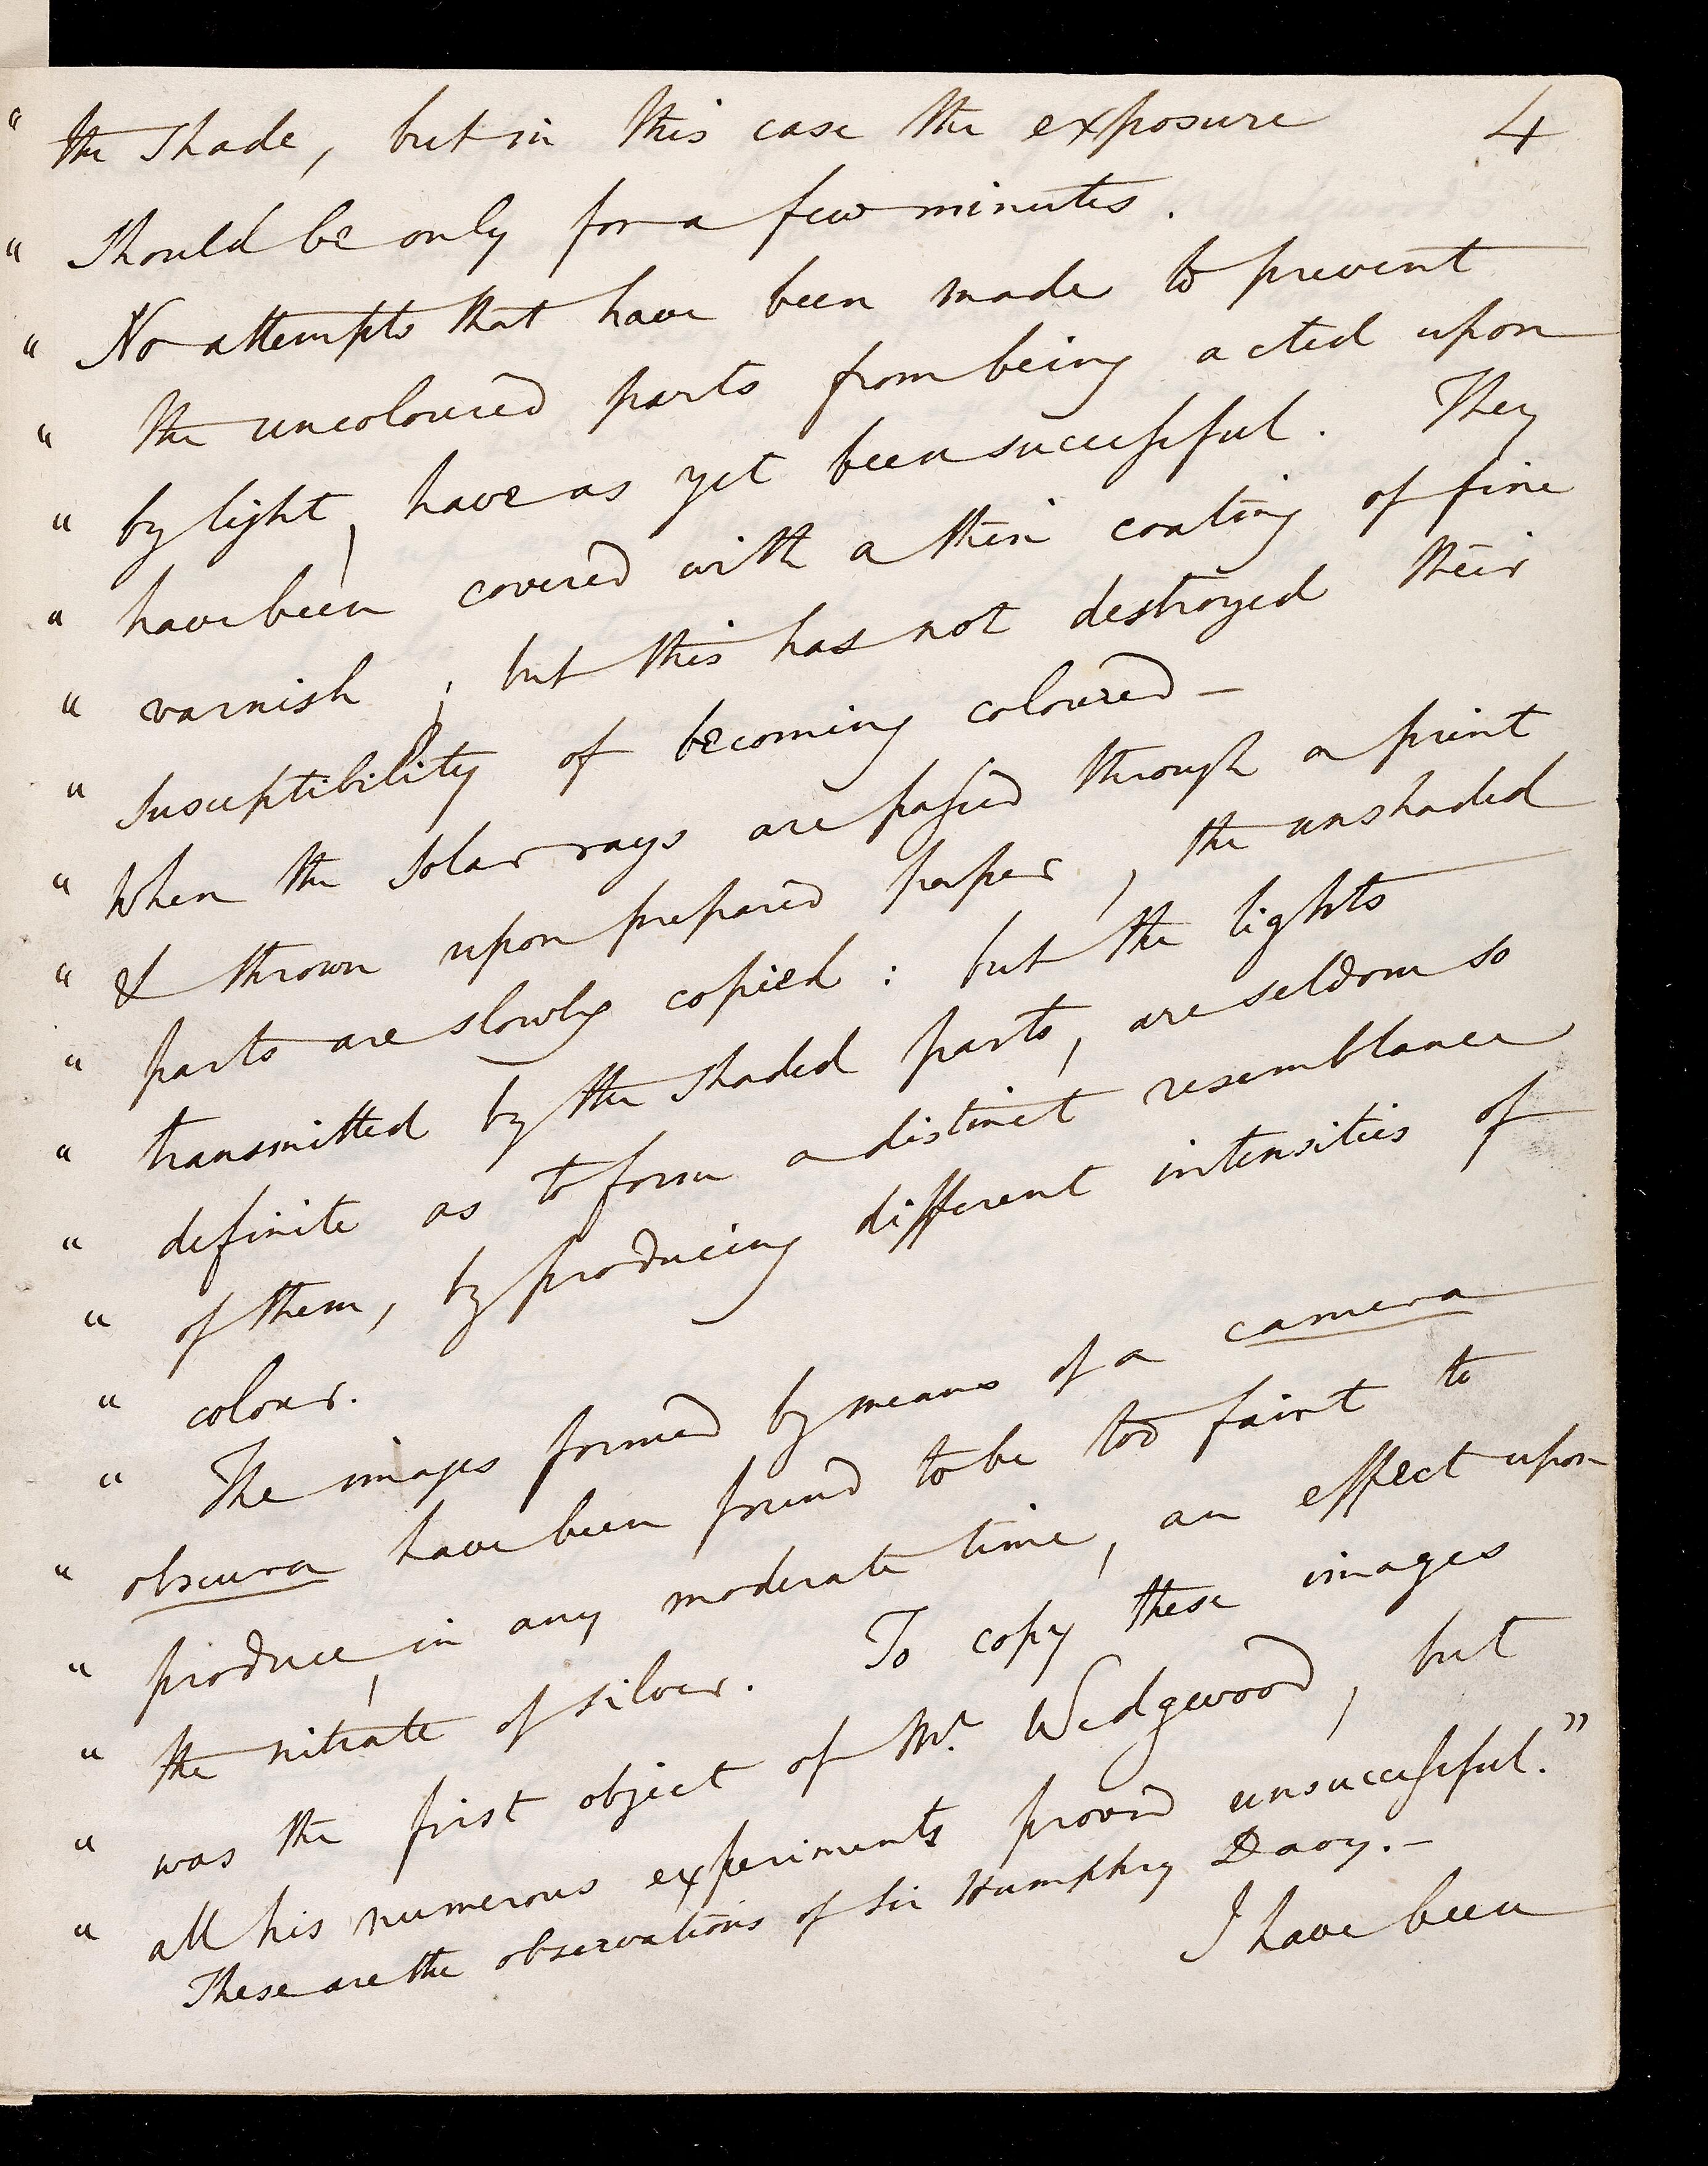 “ the shade, but in this case the exposure 4
“ should be only for a few minutes.
“ No attempts that have been made to prevent
“ the uncoloured parts from being acted upon
“ by light, have as yet been successful. They
“ have been covered with a thin coating of fine
“ varnish; but this has not destroyed their
“ susceptibility of becoming coloured –
“ When the solar rays are passed through a print
“ & thrown upon prepared paper, the unshaded
“ parts are slowly copied: but the lights
“ transmitted by the shaded parts, are seldom so
“ definite as to form a distinct resemblance
“ of them, by producing different intensities of
“ colour.
“ The images formed by means of a camera
“ obscura have been found to be too faint to
“ produce, in any moderate time, an effect upon
“ the nitrate of silver. To copy these images
“ was the first object of Mr. Wedgwood, but
“ all his numerous experiments proved unsuccessful.”
These are the observations of Sir Humphry Davy. –
I have been